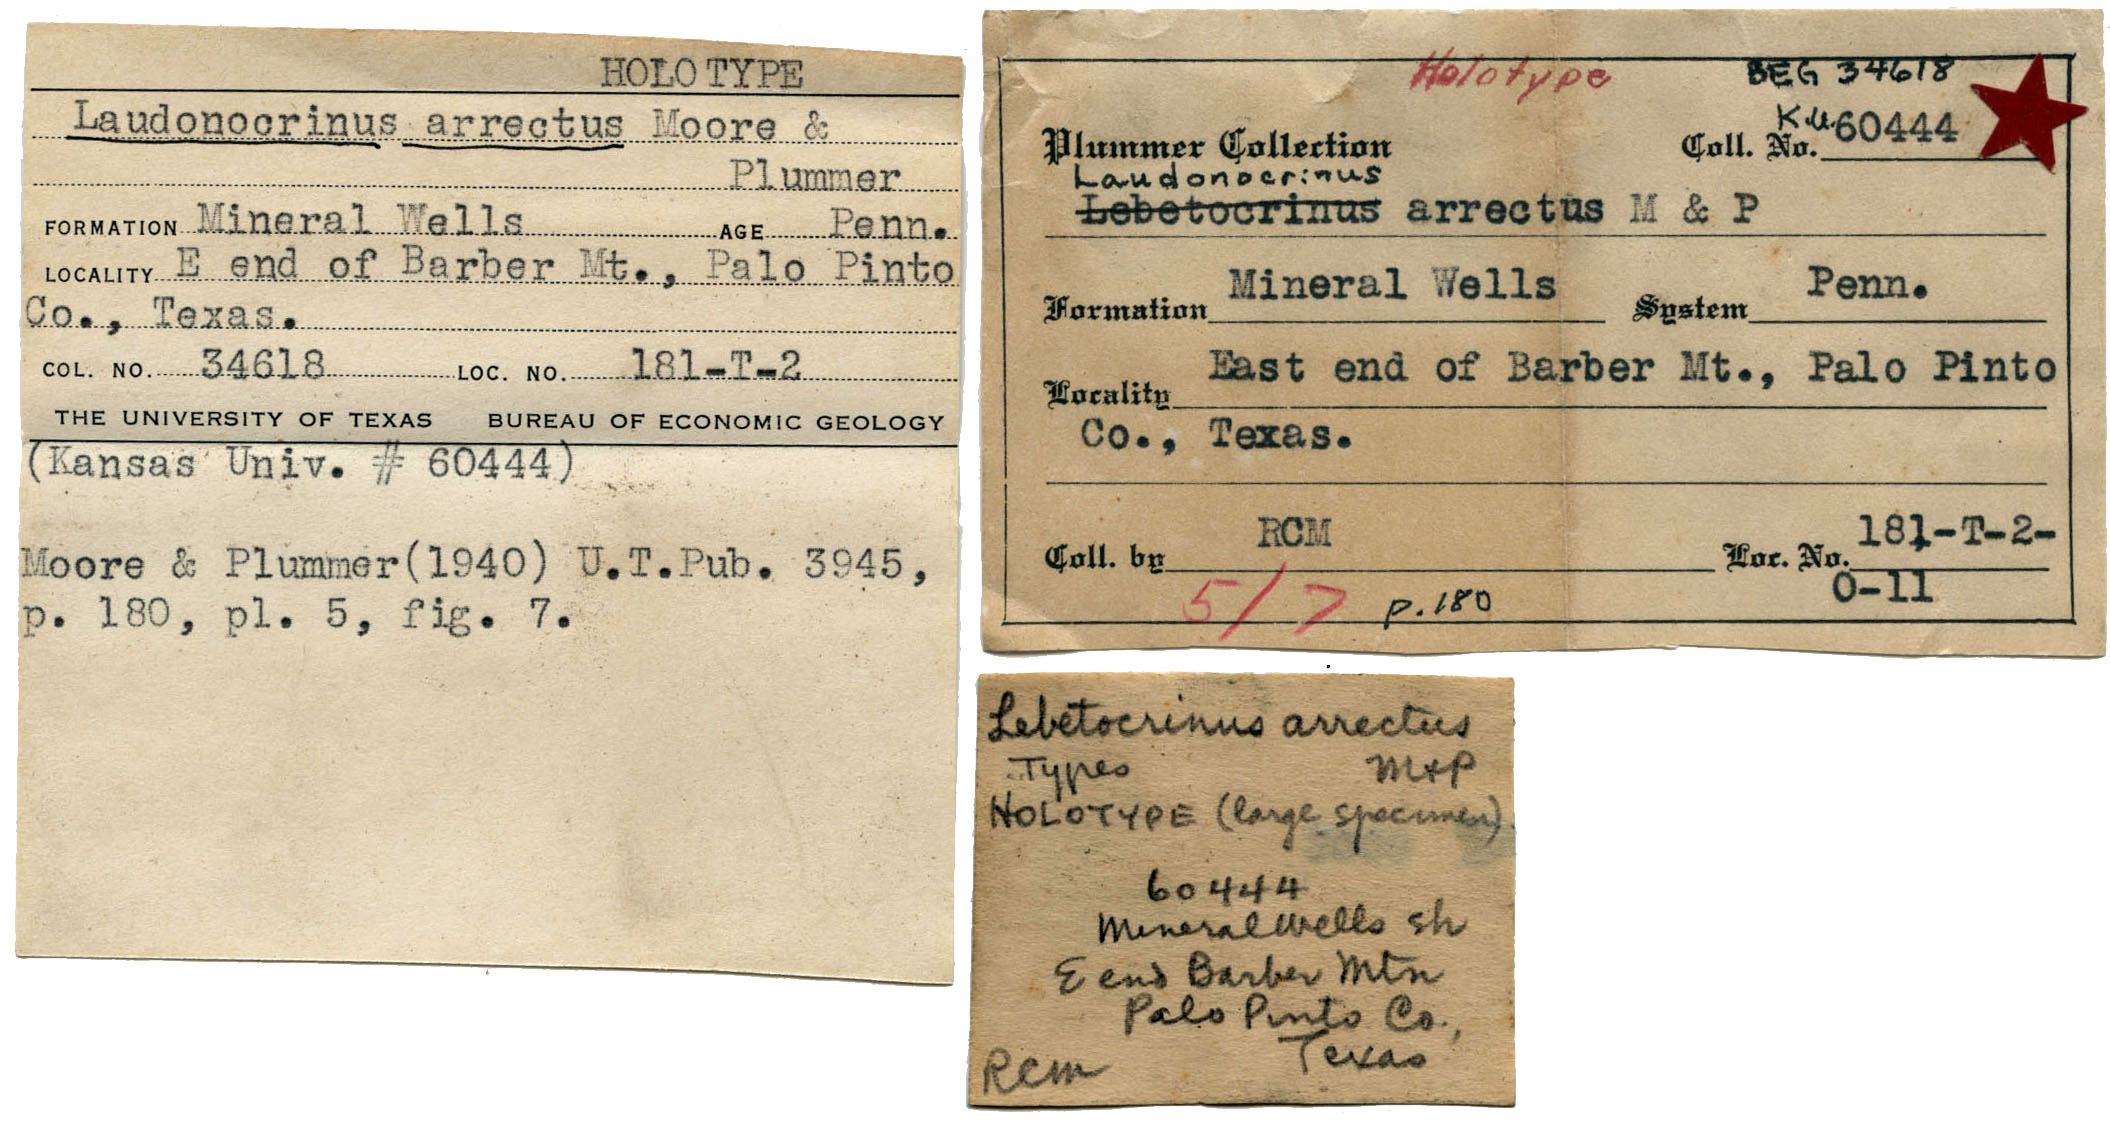 HOLOTYPE
Laudonocrinus arrectus Moore &
Plummer
FORMATION Mineral Wells AGE Penn.
LOCALITY E end of Barber Mt., Palo Pinto
Co., Texas.
COL. NO. 34618 LOC. NO. 181-T-2
THE UNIVERSITY OF TEXAS BUREAU OF ECONOMIC GEOLOGY
(Kansas Univ. # 60444)
Moore & Plummer(1940) U.T.Pub. 3945,
p. 180, pl. 5, fig. 7.
Holotype BEG 34618
Plummer Collection Coll. No. K.U. 60444
Laudonocrinus
Lebetocrinus arrectus M & P
Formation Mineral Wells System Penn.
Locality East end of Barber Mt., Palo Pinto
Co., Texas.
Coll. by RCM Loc. No. 181-T-2-
O-11
5/7 p.180
Lebetocrinus arrectus
Types M+P
HOLOTYPE (large specimen).
60444
Mineral Wells sh
E end Barber Mtn
Palo Pinto Co.,
Texas
RCM